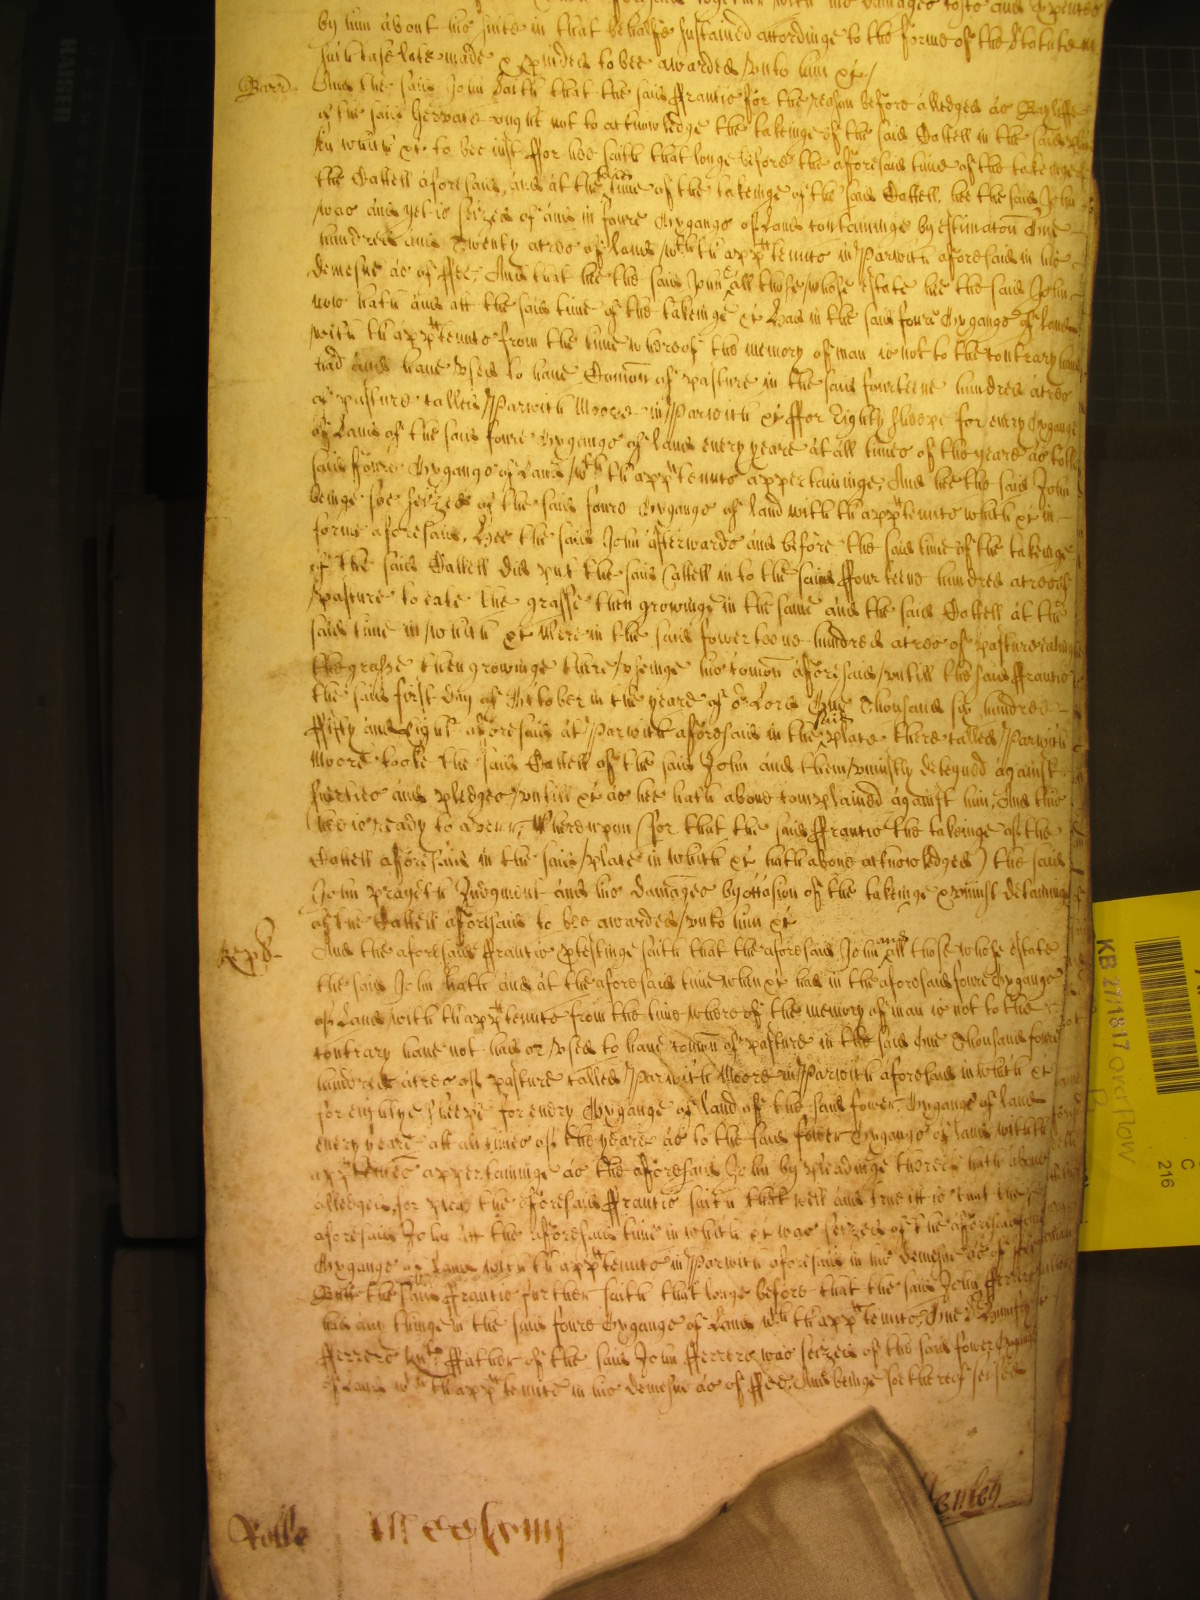 aforesaid together with his damages costs and expences
by him about his suite in that behalfe sustained accordinge to the forme of the Statute in
such case late made &amp; provided to bee awarded vnto him &amp;c/
Barr. And the said John saith that the said Francis for the reason before alledged as Bayliffe
of the said Gervase ought not to acknowledge the takeinge of the said Cattell in the said place
in which &amp;c to bee iust ffor hee saith that longe before the aforesaid time of the takeinge of
the Cattell aforesaid, and at the said time of the takeinge of the said Cattell, hee the said John
was and yet is seized of and in foure Oxgangs of Land containinge by estimacon One
hundred and Twenty acres of land wth th'appᵗtennts in Parwich aforesaid in his
demesne as of ffee, And that hee the said John &amp; all those whose estate hee the said John
now hath and att the said time of the takeinge &amp;c had in the said foure Oxgangs of land
with th'appᵗtennts from the time whereof the memory of man is not to the contrary have
had and haue vsed to haue Comon of pasture in the said fourteene hundred acres
of pasture called Parwich Moore in Parwich &amp;c ffor Eighty sheepe for every Oxgange
of Land of the said foure Oxgangs of land every yeare at all times of the yeare as to the
said foure Oxgangs of Land wth th'appᵗtennts appertaininge, And hee the said John
beinge soe seized of the said foure Oxgangs of land with th'appᵗtennts which &amp;c in
forme aforesaid, Hee the said John afterwards and before the said time of the takeinge
of the said Cattell did put the said Cattell in to the said ffourteene hundred acres of
pasture to eate the grasse then growinge in the same and the said Cattell at the
said time in which &amp;c were in the said fowerteene hundred acres of pasture eatinge
the grasse then growinge there vseinge his comon aforesaid vntill the said Francis
the said first day of October in the yeare of oʳ Lord One Thousand six hundred
ffifty and eight aforesaid at Parwich aforesaid in the said place there called Parwich
Moore tooke the said Cattell of the said John and them vniustly deteyned against
suerties and pledges vntill &amp;c as hee hath aboue complained against him, And this
hee is ready to averr, Wherevpon (for that the said Francis the takeinge of the
Cattell aforesaid in the said place in which &amp;c hath aboue acknowledged) the said
John prayeth Judgment and his damages by occasion of the takeinge &amp; vniust detaininge
of the Cattell aforesaid to bee awarded vnto him &amp;c
Repl. And the aforesaid Francis p'testinge saith that the aforesaid John and all those whose estate
the said John hath and at the aforesaid time when &amp;c had in the aforesaid foure Oxgangs
of Land with th'appᵗtennts from the time whereof the memory of man is not to the
contrary haue not had or vsed to haue comon of pasture in the said One Thousand foure
hundred acres of pasture called Parwich Moore in Parwich aforesaid in which &amp;c
for eightye sheepe for every Oxgange of land of the said fower Oxgangs of land
every yeare att all times of the yeare as to the said fower Oxgangs of land with th'
appᵗtennts appertaininge as the aforesaid John by pleadinge thereof hath aboue
alledged, for plea the aforesaid Francis saith that well and true itt is that the
aforesaid John att the aforesaid time in which &amp;c was seized of the aforesaid foure
Oxgangs of land with th'appᵗtennts in Parwich aforesaid in his demesne as of ffee
But the said Francis further saith that longe before that the said John fferrers
had any thinge in the said foure Oxgangs of Land wth th'appᵗtennts, One Humfry
fferrers ffather of the said John fferrers was seized of the said fower Oxgangs
of Land wth th'appᵗtennts in his demesne as of ffee, And beinge soe thereof seised
Rolle
Henley
KB 27/1817 OVERFLOW
C
216